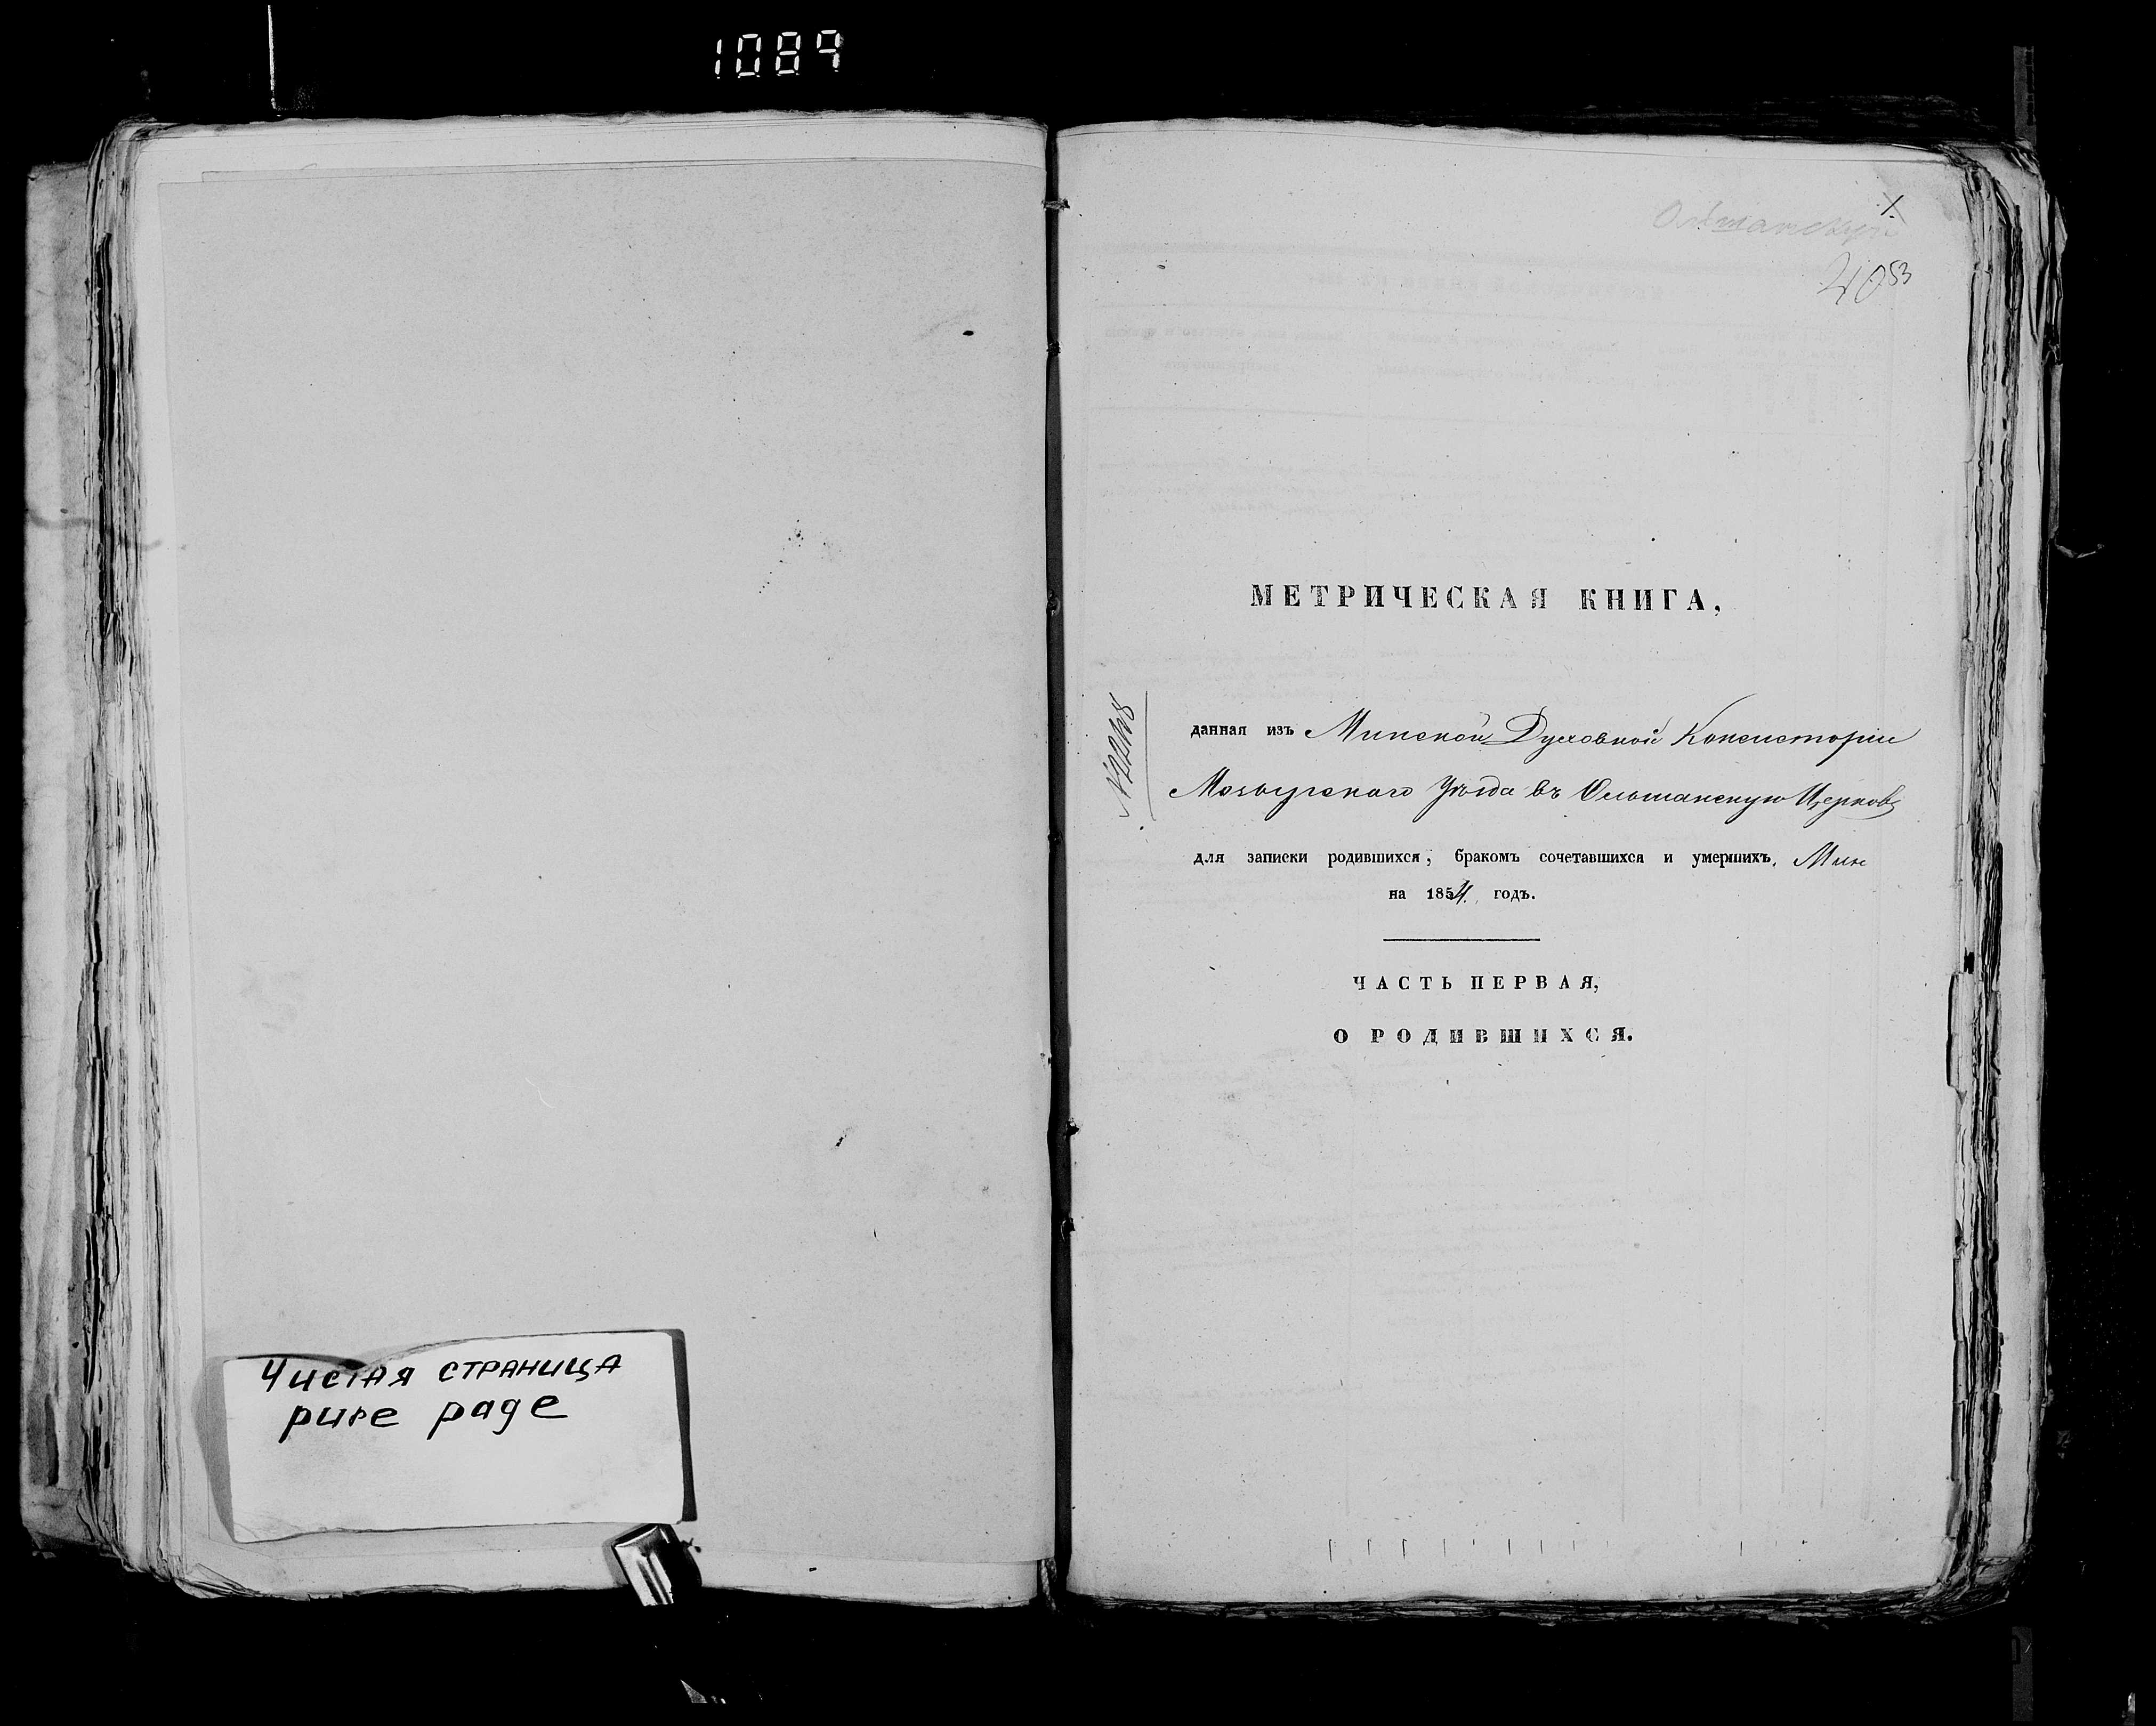 1089
Чистая страница
pure page
Ольшанскую
4053
МЕТРИЧЕСКАЯ КНИГА,
данная изъ Минской Духовной Консисторіи
Мозырскаго Уѣзда въ Ольшанскую Церковь
для записки родившихся, бракомъ сочетавшихся и умершихъ,
на 1854. годъ.
ЧАСТЬ ПЕРВАЯ,
О РОДИВШИХСЯ.